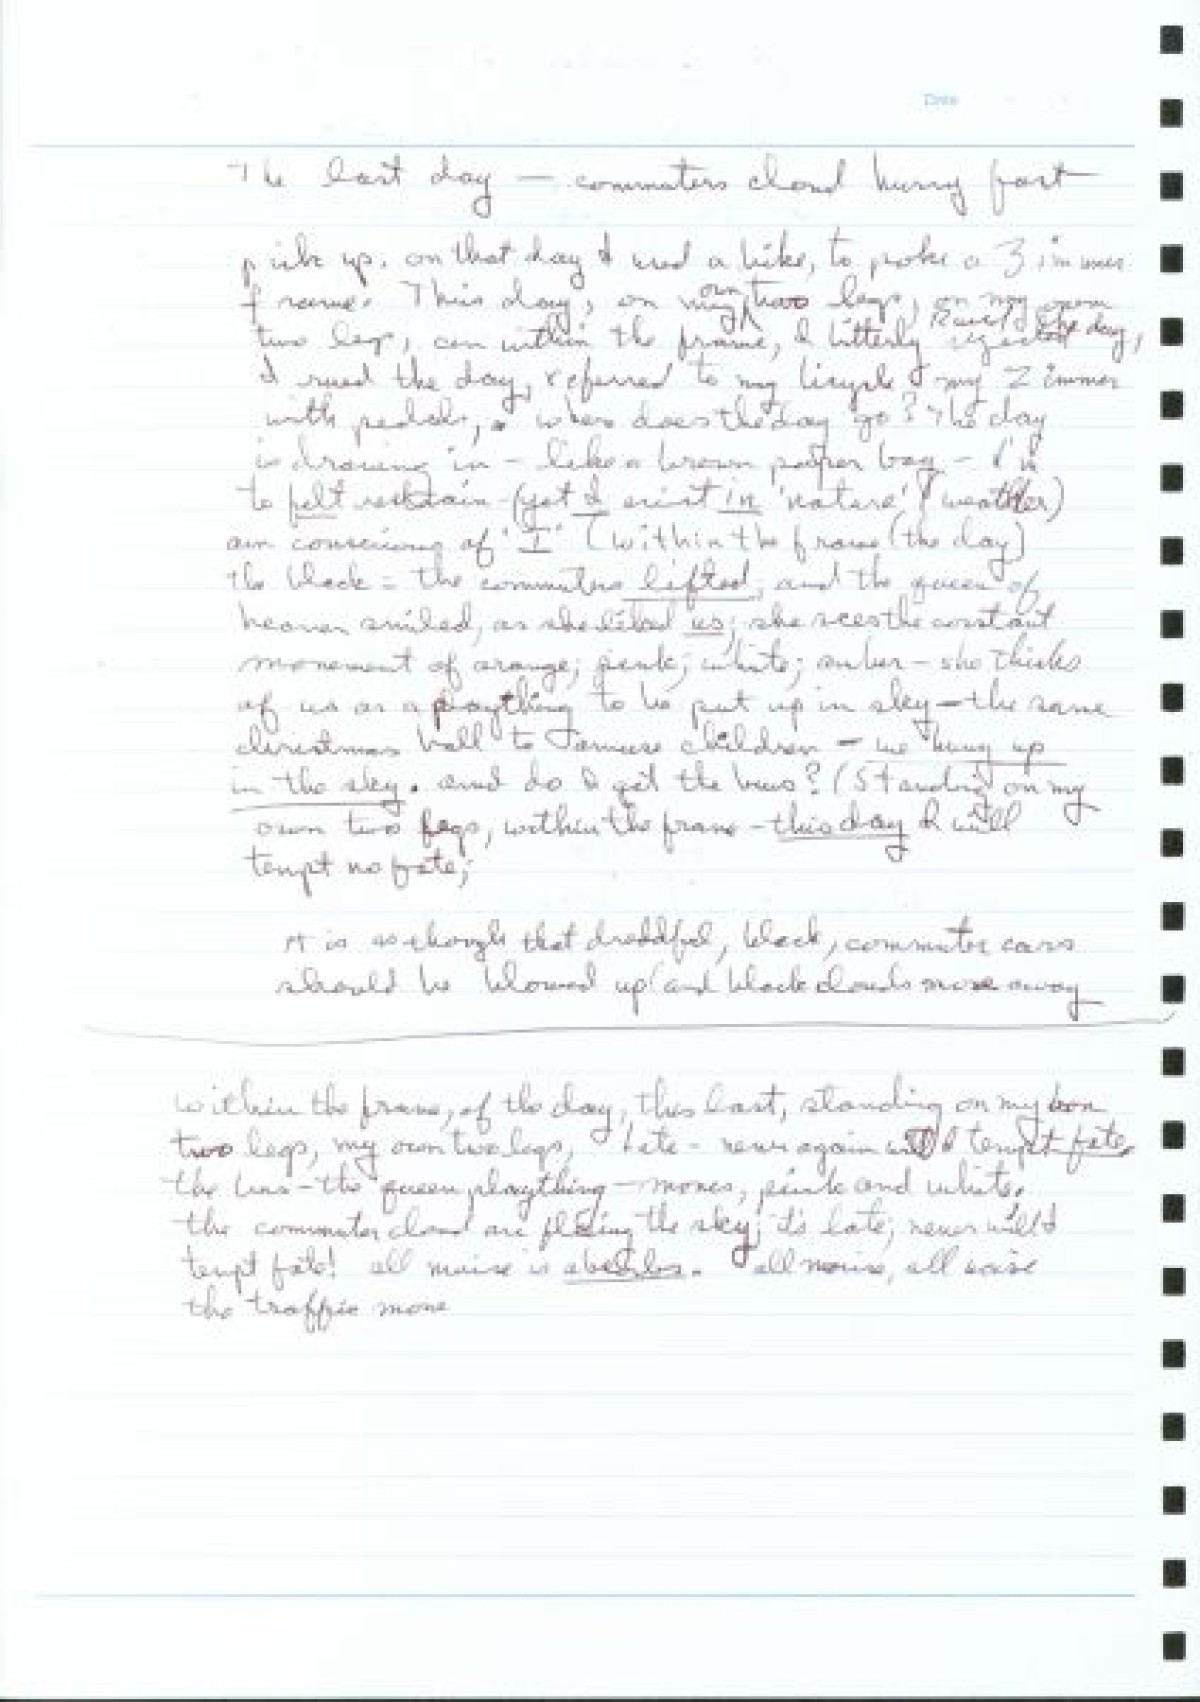 Date
The last day — commuters cloud hurry past
pick up. on that day I used a bike, to poke a Zimmer
frame. This day, on my own two legs, on my own
two legs, can within the frame, I bitterly the day,
I rued the day, referred to my bicycle my Zimmer
with pedals, where does the day go? The day
is drawing in – like a brown paper bag – I'm
to felt – (yet I exist in 'nature' (weather)
am conscious of 'I' (within the frame (the day)
the black = the commuters lifted, and the queen of
heaven smiled, as she liked us; she sees the constant
movement of orange; pink; white; amber – she thinks
of us as a plaything to be put up in sky – the same
christmas ball to amuse children – we hung up
in the sky. and do I get the bus? (Standing on my
own two legs, within the frame – this day I will
tempt no fate;
It is as though that dreadful, black, commuter cars
should be blowed up (and black clouds move away
within the frame, of the day, this last, standing on my own
two legs, my own two legs, late – never again will I tempt fate.
the bus – the queen plaything – moves, pink and white.
the commuter cloud are the sky; it's late; never will I
tempt fate! all noise is all noise, all
the traffic move